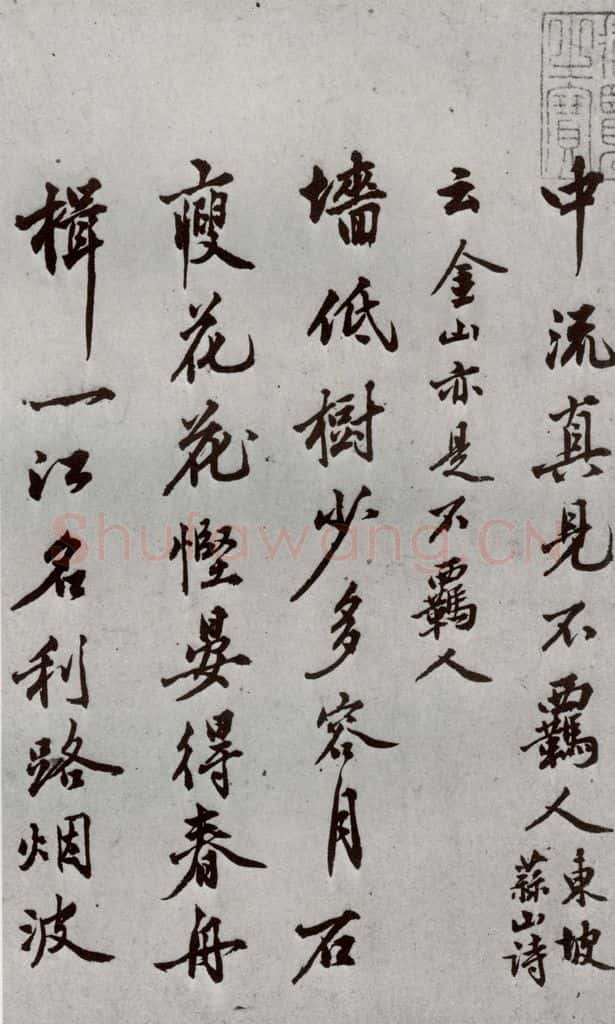 中流真見不覊人
東坡
蒜山诗
云金山亦是不覊人
墻低樹少多容月石
瘦花花慳晏得春舟
楫一江名利路烟波
Shufawang.CN